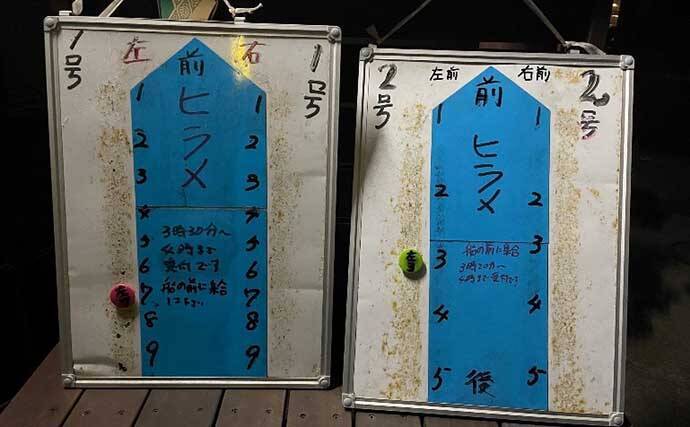 1号
左
右
1号
前
ヒラメ
1
1
2
2
3
3
4
4
3時30分〜
4時まで
受付です
船の前に集合
5
5
6
6
7
7
8
8
9
9
2号
左前
右前
2号
前
ヒラメ
1
1
2
2
船の前に集合
3時30分〜
4時まで受付です
3
3
4
4
5
後
5